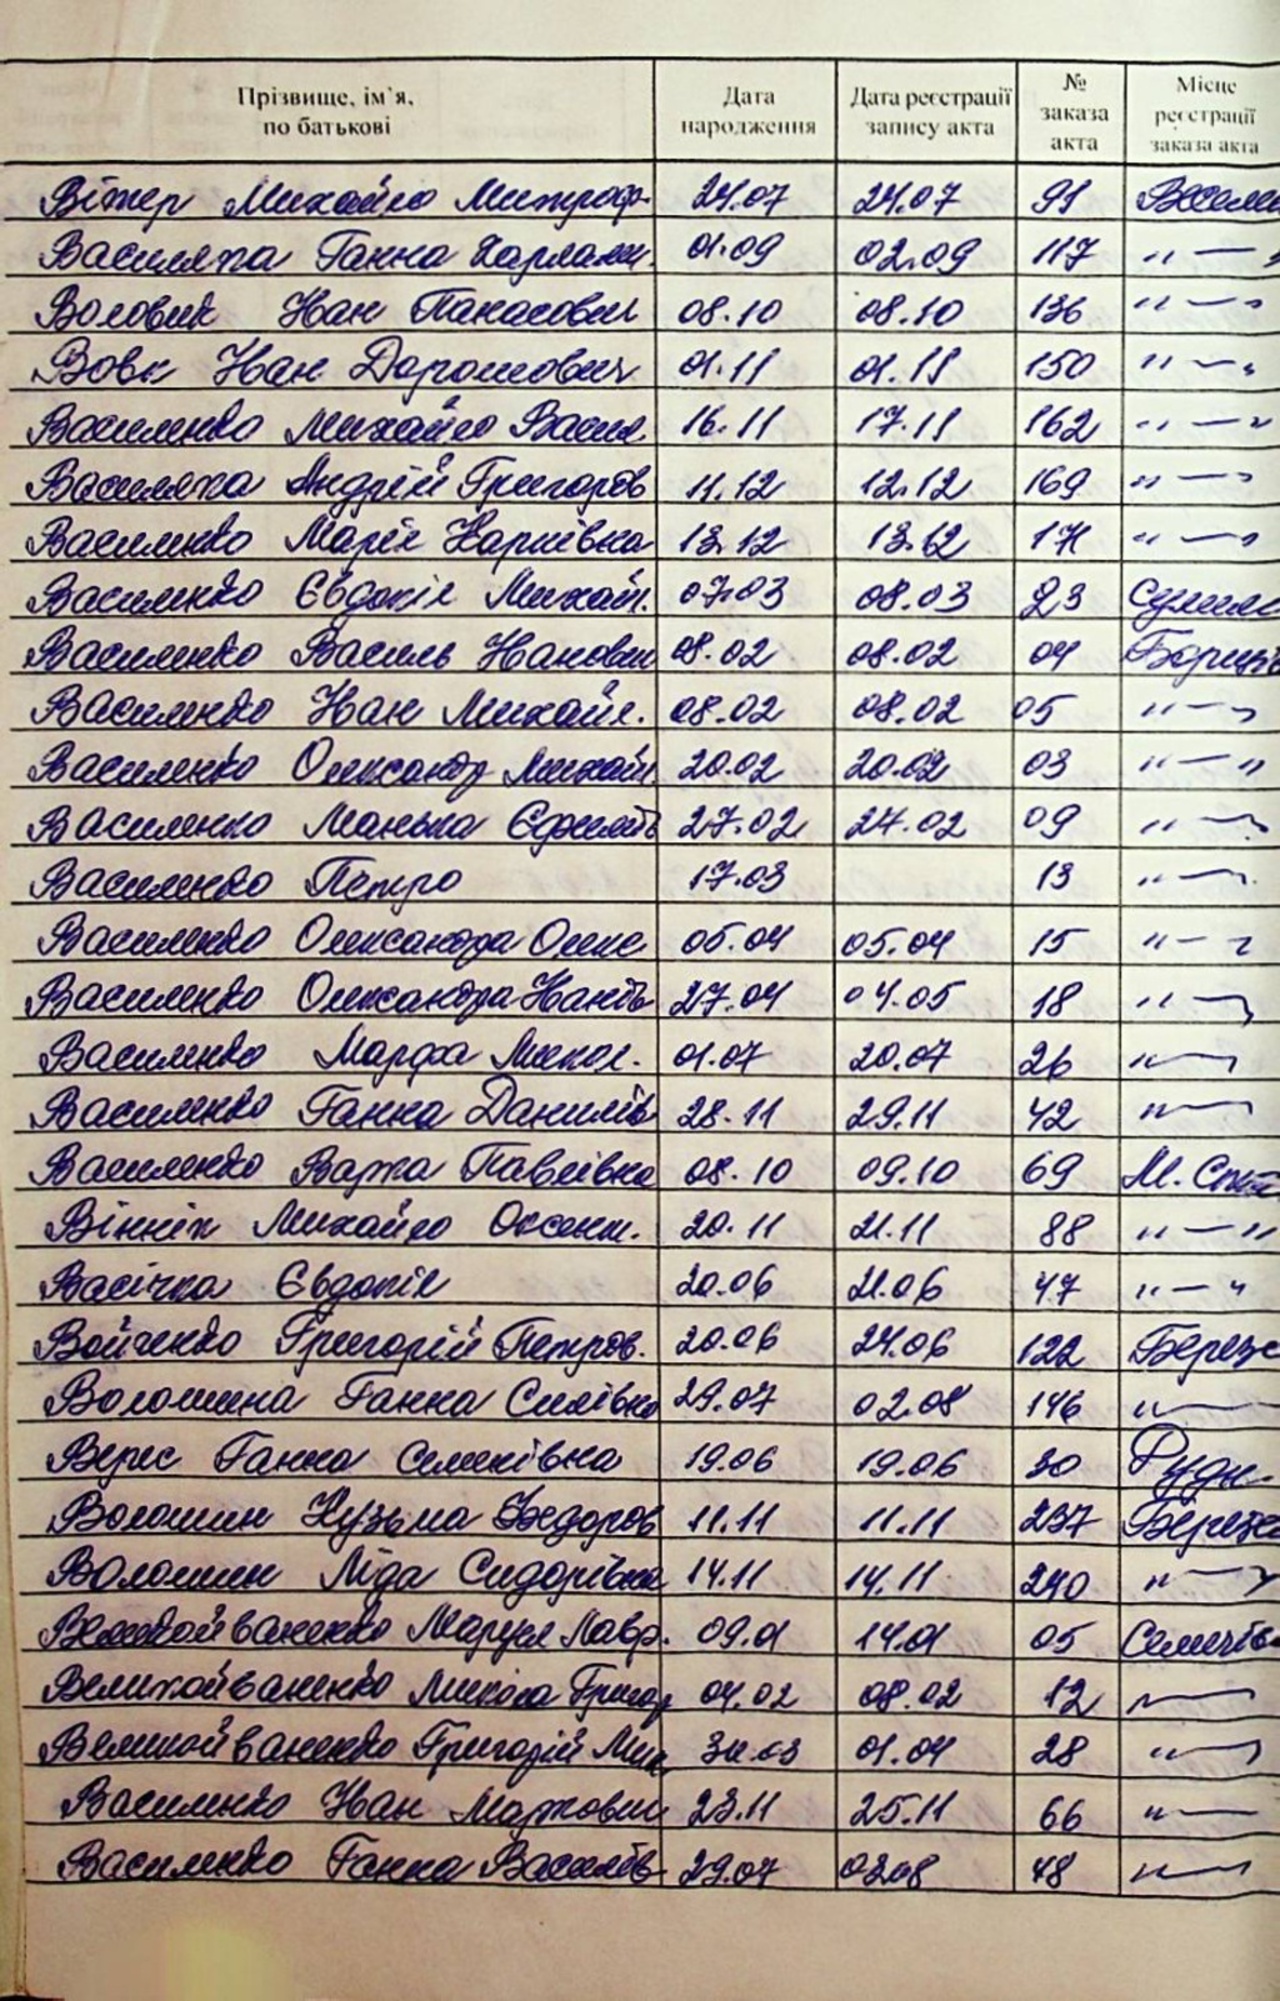 Прізвище, ім'я, по батькові Дата народження Дата реєстрації запису акта № заказа акта Місце реєстрації заказа акта
Вітер Михайло Митроф. 24.07 24.07 91 Весели
Василяка Ганна Харлами. 01.09 02.09 117 " — "
Воловик Іван Панасович 08.10 08.10 136 " — "
Вовк Іван Дорошович 01.11 01.11 150 " — "
Василенко Михайло Васил. 16.11 17.11 162 " — "
Василяка Андрій Григоров 11.12 12.12 169 " — "
Василенко Марія Карпівна 13.12 13.12 171 " — "
Василенко Євдокія Михайл. 07.03 08.03 23
Василенко Василь Іванович 08.02 08.02 04
Василенко Іван Михайл. 08.02 08.02 05 " — "
Василенко Олександр Михайл 20.02 20.02 03 " — "
Василенко Манька Єфимів 27.02 27.02 09 " — "
Василенко Петро 17.03 13 " — "
Василенко Олександра Олекс 05.04 05.04 15 " — "
Василенко Олександра Іванів 27.04 04.05 18 " — "
Василенко Марфа Микол. 01.07 20.07 26 " — "
Василенко Ганна Данилів 28.11 29.11 42 " — "
Василенко Варка Павлівна 08.10 09.10 69 М.
Вінник Михайло Оксент. 20.11 21.11 88 " — "
Васічка Євдокія 20.06 21.06 47 " — "
Войченко Григорій Петров. 20.06 24.06 122 Березн
Волошина Ганна Силівна 29.07 02.08 146 " —
Верес Ганна Семенівна 19.06 19.06 30 Рудн.
Волошин Кузьма Федоров 11.11 11.11 237 Березн
Волошин Ліда Сидорівна 14.11 14.11 240 " — "
Великойваненко Маруся Лавр. 09.01 14.01 05 Семенів
Великойваненко Микола Григор 04.02 08.02 12 " —
Великойваненко Григорій Мик. 30.03 01.04 28 " — "
Василенко Іван Маркович 23.11 25.11 66 " —
Василенко Ганна Василів 29.07 02.08 48 " —